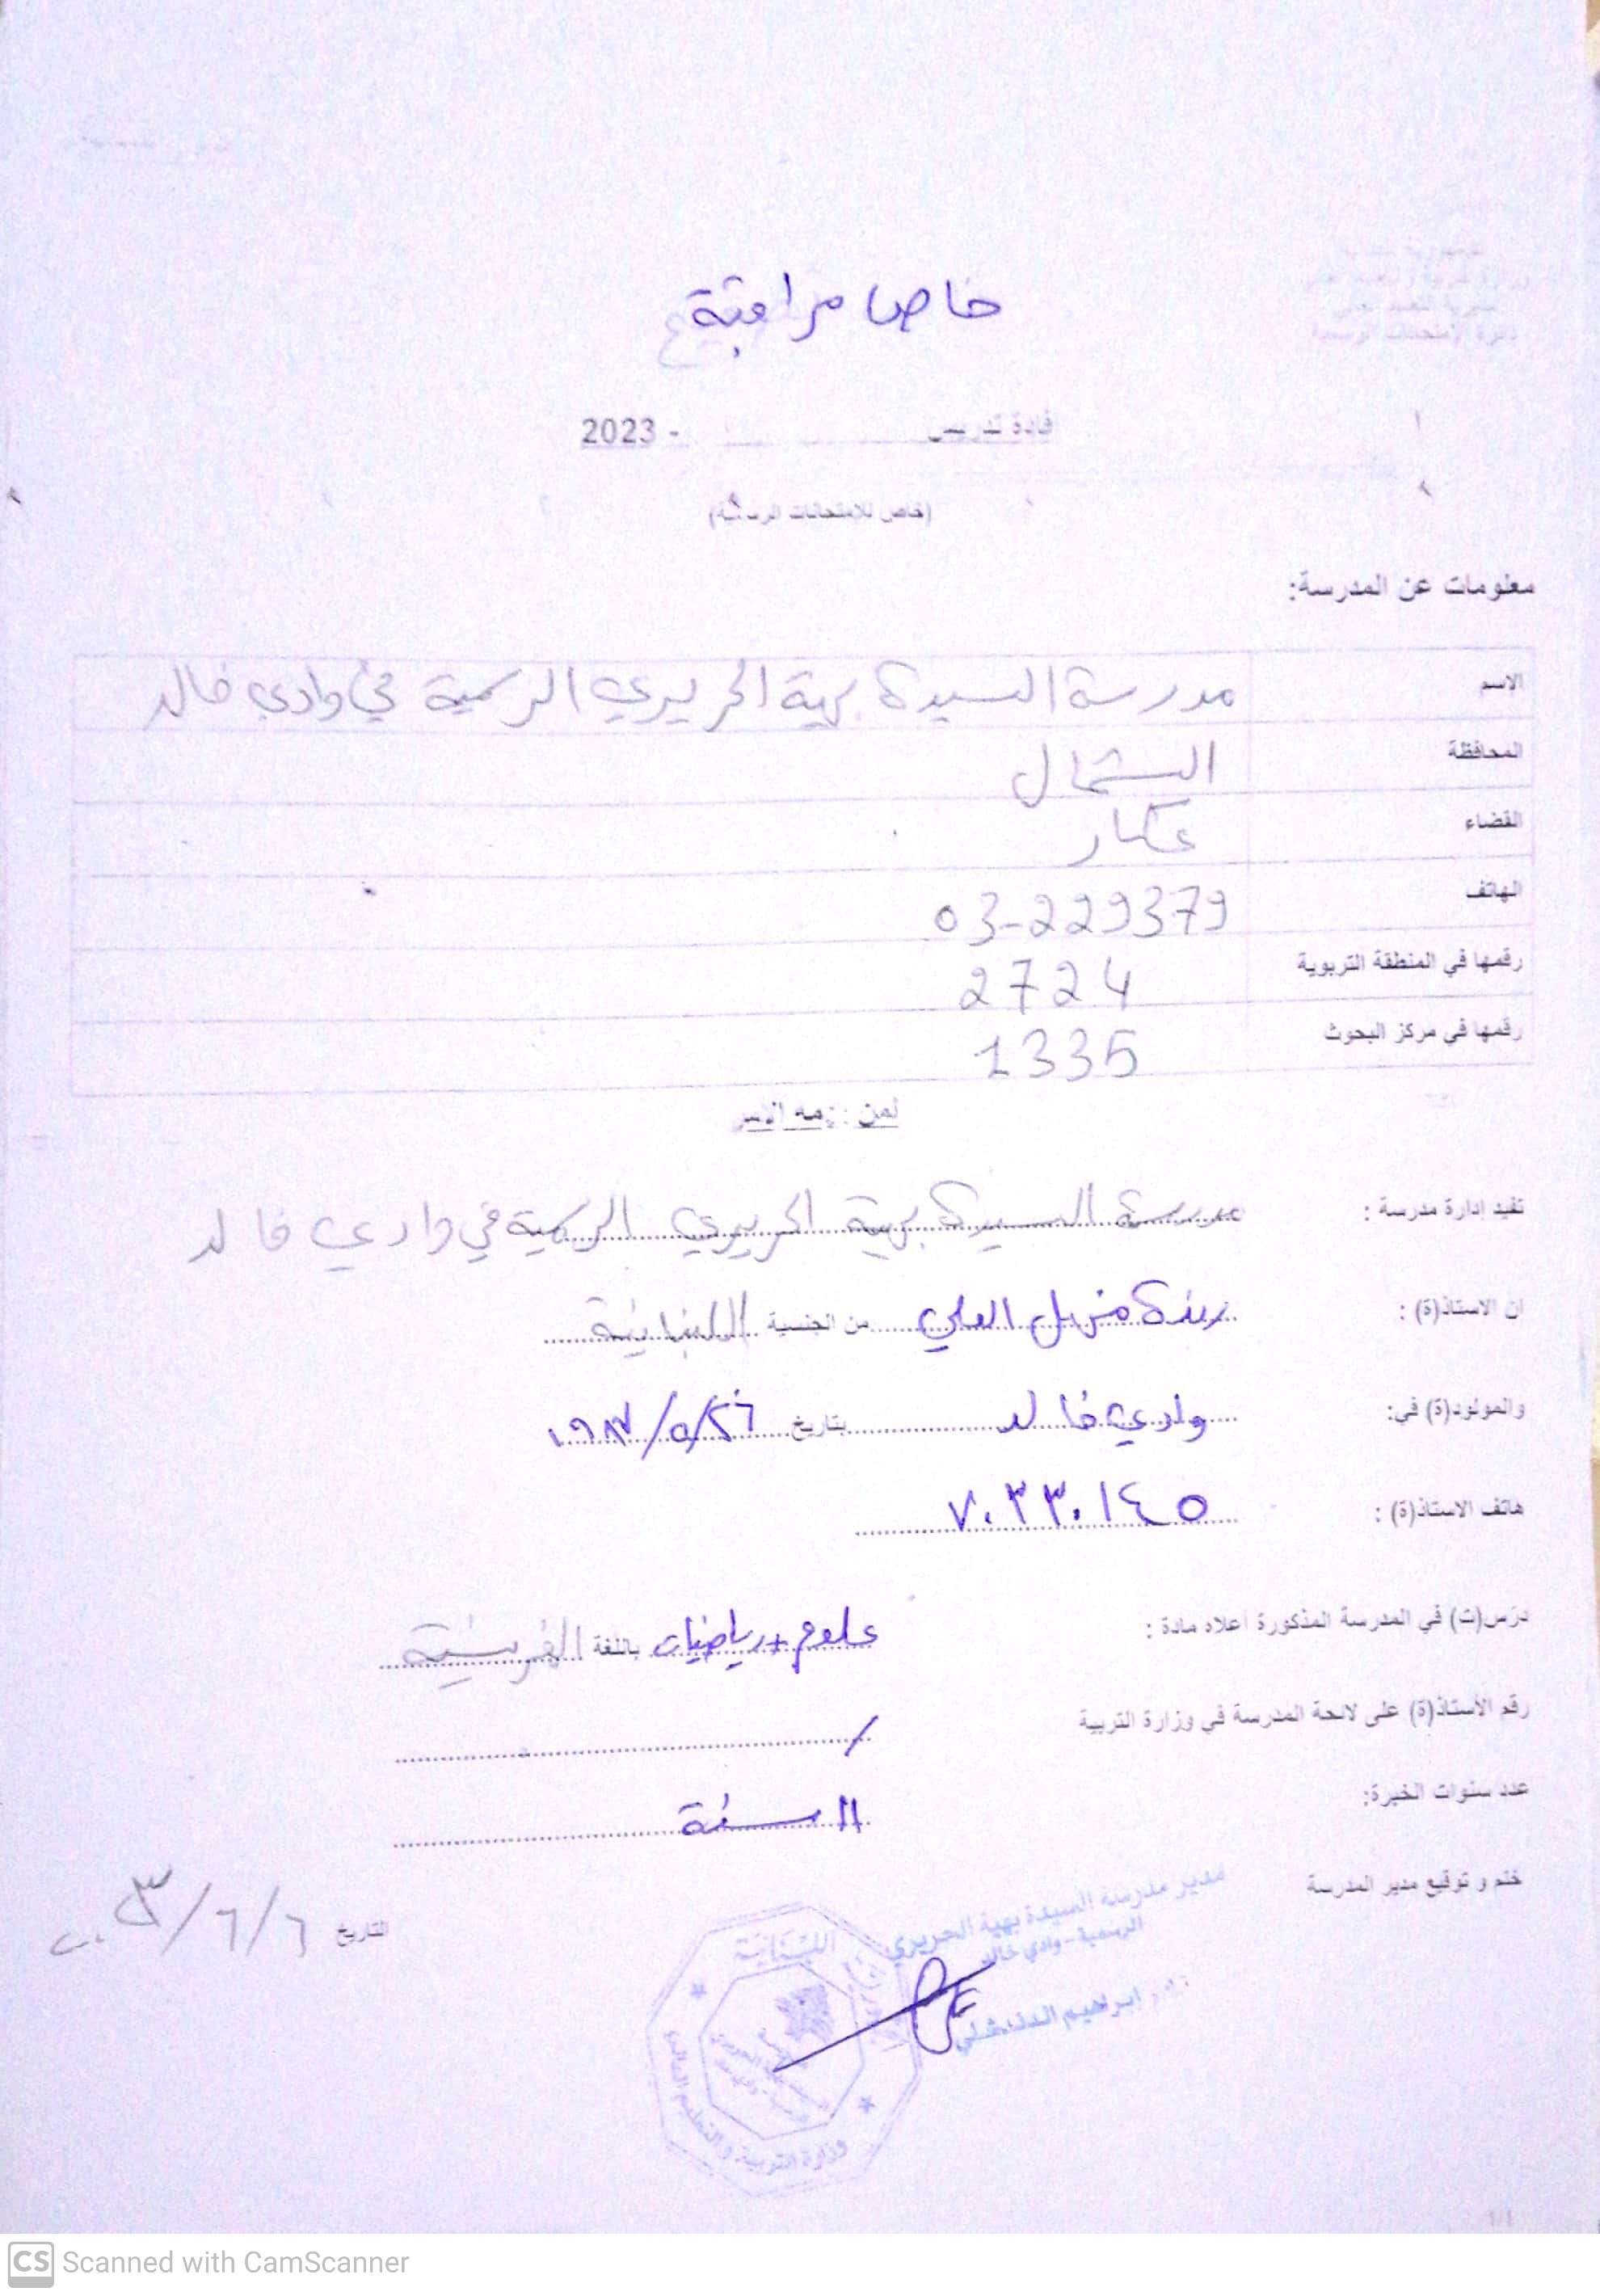 خاص مراقبة
2023 -
(خاص للامتحانات الرسمية)
معلومات عن المدرسة:
الاسم مدرسة السيدة بهية الحريري الرسمية في وادي خالد
المحافظة الشمال
القضاء عكار
الهاتف 03-229379
رقمها في المنطقة التربوية 2724
رقمها في مركز البحوث 1335
لمن يهمه الامر
تفيد إدارة مدرسة : مدرسة السيدة بهية الحريري الرسمية في وادي خالد
ان الاستاذ(ة) : رندة منهل العلي من الجنسية اللبنانية
والمولود(ة) في: وادي خالد بتاريخ ٢٦/٥/١٩٨٧
هاتف الاستاذ(ة) : ٧٠٣٣٠١٤٥
درس(ت) في المدرسة المذكورة اعلاه مادة : علوم + رياضيات باللغة الفرنسية
رقم الأستاذ(ة) على لائحة المدرسة في وزارة التربية /
عدد سنوات الخبرة: 11 سنة
ختم و توقيع مدير المدرسة
التاريخ ٦/٦/٢٠٢٣
مدير مدرسة السيدة بهية الحريري
الرسمية - وادي خالد
ابراهيم الدندشلي
اللبنانية
وزارة التربية و التعليم العالي
1/1
CS Scanned with CamScanner